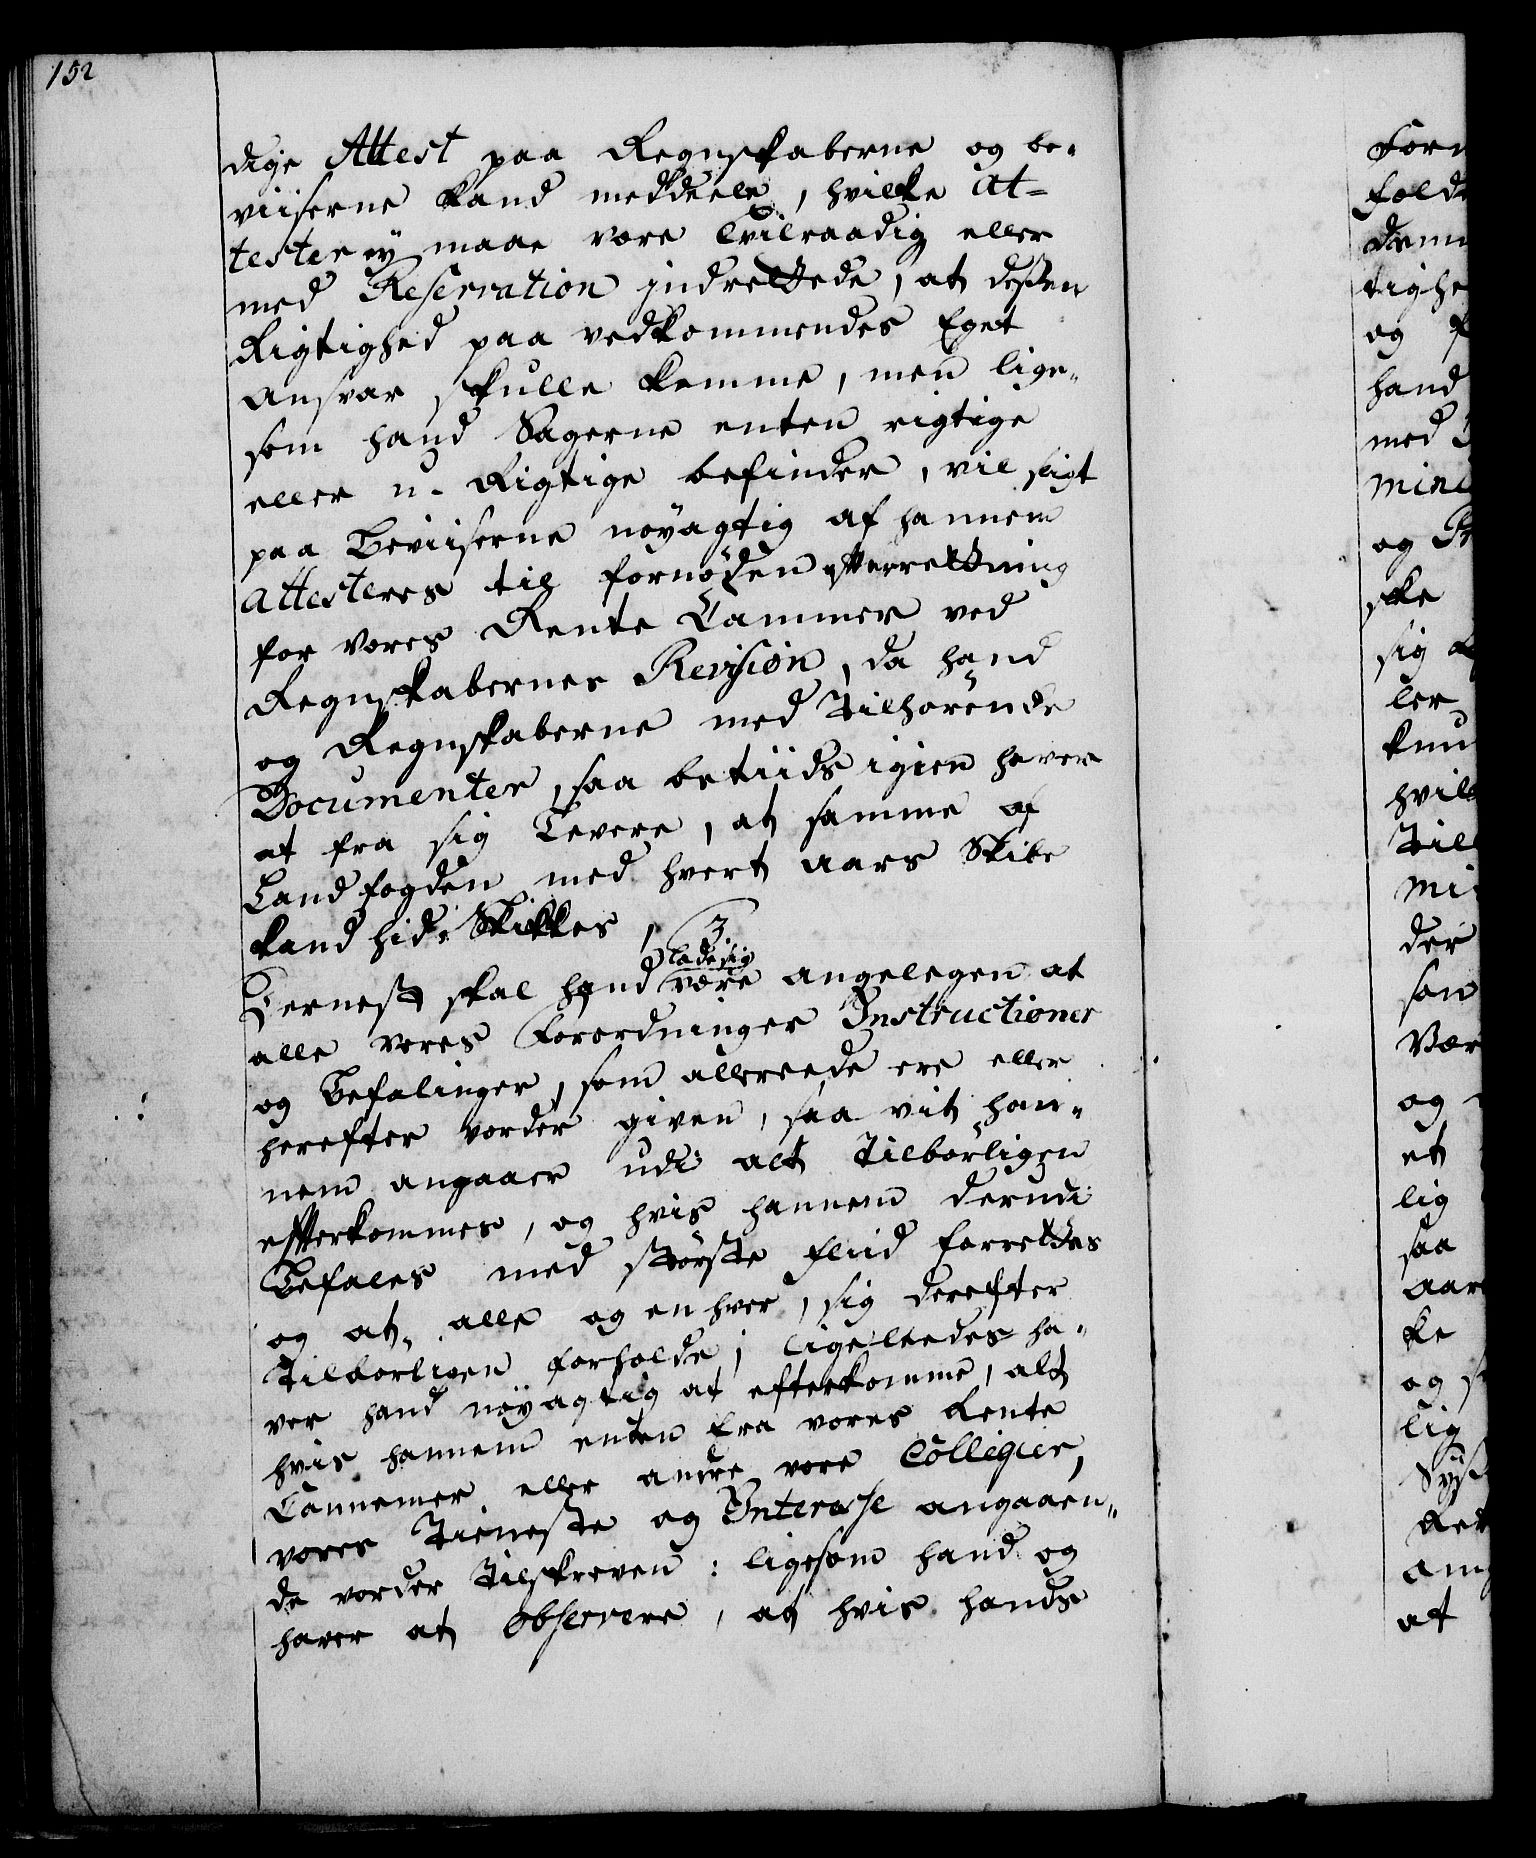 152
dige Attest paa Regnskaberne og be-
viiserne kand meddeele, hvilke At-
tester ey maae være tvilraadig eller
med Reservation indrettede, at dessen
Rigtighed paa vedkommendes Eget
ansvar skulle komme, men lige-
som hand Sagerne enten rigtige
eller u-Rigtige befinder, vil sligt
paa Beviiserne nøyagtig af hannem
attesteres til fornøden efterrettning
for vores Rente Cammer ved
Regnskabernes Revision, da hand
og Regnskaberne med Tilhørende
Documenter, saa betiids igien haver
at fra sig Levere, at samme af
Landfogden med hvert aars Skibe
kand hid-Skikkes, 3
Dernest skal hand lade sig være angelegen at
alle vores Forordninger Instructioner
og Befalinger, som allereede ere eller
herefter vorder given, saa vit han-
nem angaaer udi alt Tilbørligen
efterkommes, og hvis hannem derudi
Befales med største fliid forrettes
og at alle og enhver, sig derefter
Tilbørligen forholde; ligeleedes ha-
ver hand nøyagtig at efterkomme, alt
hvis hannem enten fra vores Rente
Cammer eller andre vore Collegier,
vores Tieneste og Interesse angaaen-
de vorder Tilskreven: ligesom hand og
haver at observere, at hvis hands
hand
med
og
ske
sig
ler
der
og
et
lig
saa
ke
og
lig
at